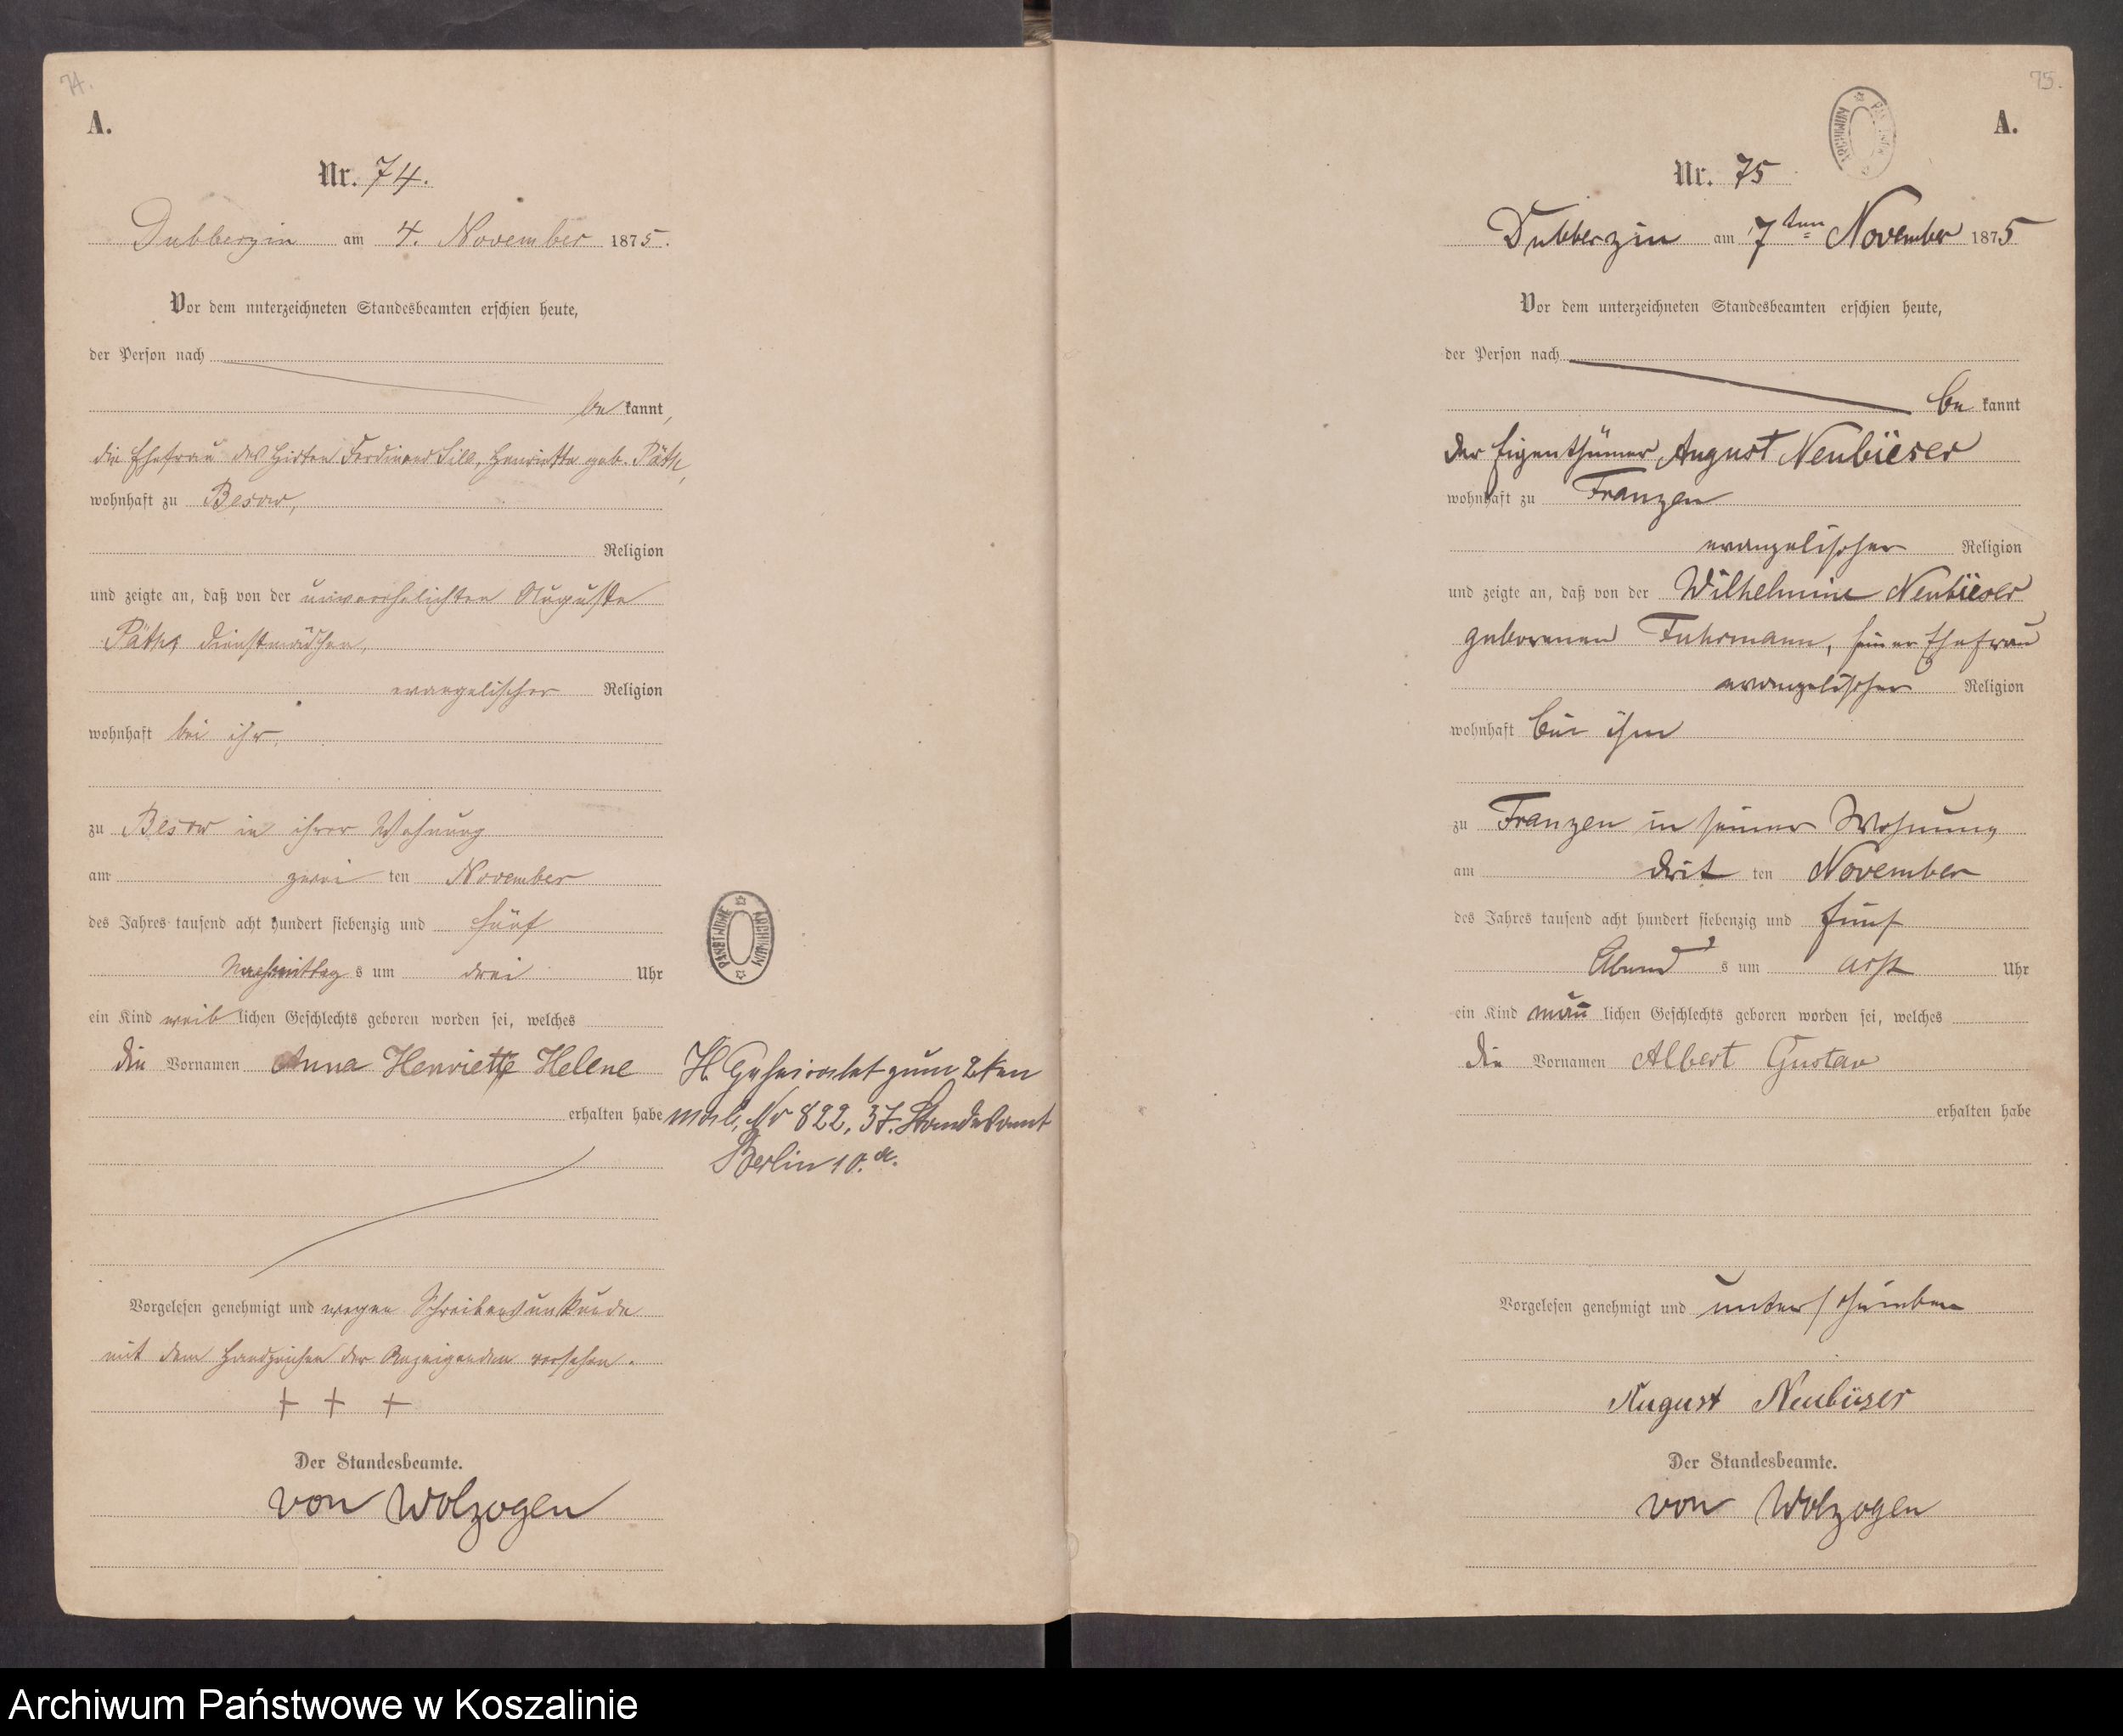 74.
A.
Nr. 74.
Dubberzin am 4. November 1875.
Vor dem unterzeichneten Standesbeamten erschien heute,
der Person nach
be kannt,
die Ehefrau des Hirten Ferdinand Sill, Henriette geb. Päth,
wohnhaft zu Besow,
Religion
und zeigte an, daß von der unverehelichten Auguste
Päth, Dienstmädchen,
evangelischer Religion
wohnhaft bei ihr,
zu Besow in ihrer Wohnung
am zwei ten November
des Jahres tausend acht hundert siebenzig und fünf
Nachmittag s um drei Uhr
ein Kind weib lichen Geschlechts geboren worden sei, welches
die Vornamen Anna Henriette Helene
erhalten habe
Vorgelesen genehmigt und wegen Schreibensunkunde
mit dem Handzeichen der Anzeigenden versehen.
+ + +
Der Standesbeamte.
von Wolzogen
PAŃSTWOWE ARCHIWUM
H. Geheiratet zum 2ten
mal, Nr 822, 37. Standesamt
Berlin 10.a.
75.
A.
ARCHIWUM
Nr. 75
Dubberzin am 7ten November 1875
Vor dem unterzeichneten Standesbeamten erschien heute,
der Person nach
be kannt
der Eigenthümer August Neubüser
wohnhaft zu Franzen
evangelischer Religion
und zeigte an, daß von der Wilhelmine Neubüser
geborenen Fuhrmann, seiner Ehefrau
evangelischer Religion
wohnhaft bei ihm
zu Franzen in seiner Wohnung
am drit ten November
des Jahres tausend acht hundert siebenzig und fünf
Abend s um acht Uhr
ein Kind män̄ lichen Geschlechts geboren worden sei, welches
die Vornamen Albert Gustav
erhalten habe
Vorgelesen genehmigt und unterschrieben
August Neubüser
Der Standesbeamte.
von Wolzogen
Archiwum Państwowe w Koszalinie